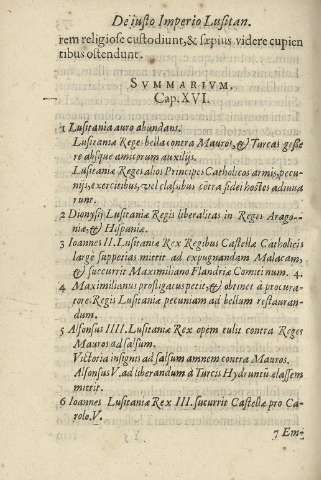 De iusto Imperio Lusitan.
rem religiose custodiunt, & sæpius videre cupien
tibus ostendunt.
SVMMARIVM.
Cap. XVI.
1 Lusitania auro abundans.
Lusitaniæ Reges bella contra Mauros, & Turcas gesse
re absque amicorum auxilijs.
Lusitaniæ Reges alios Principes Catholicos armis, pecu
nijs, exercitibus, vel classibus cõtra fidei hostes adiuua
runt.
2 Dionysij Lusitaniæ Regis liberalitas in Reges Arago-
niæ, & Hispaniæ.
3 Ioannes II. Lusitaniæ Rex Regibus Castellæ Catholicis
largè suppetias mittit ad expugnandam Malacam,
& succurrit Maximiliano Flandriæ Comiti num. 4.
4 Maximilianus profligatus petit, & obtinet à procura-
tore Regis Lusitaniæ pecuniam ad bellum restauran-
dum.
5 Alfonsus IIII. Lusitaniæ Rex opem tulit contra Reges
Mauros ad salsum.
Victoria insignis ad salsum amnem contra Mauros.
Alfonsus V. ad liberandum à Turcis Hydruntũ classem
mittit.
6 Ioannes Lusitaniæ Rex III. sucurrit Castellæ pro Ca-
rolo V.
7 Em-